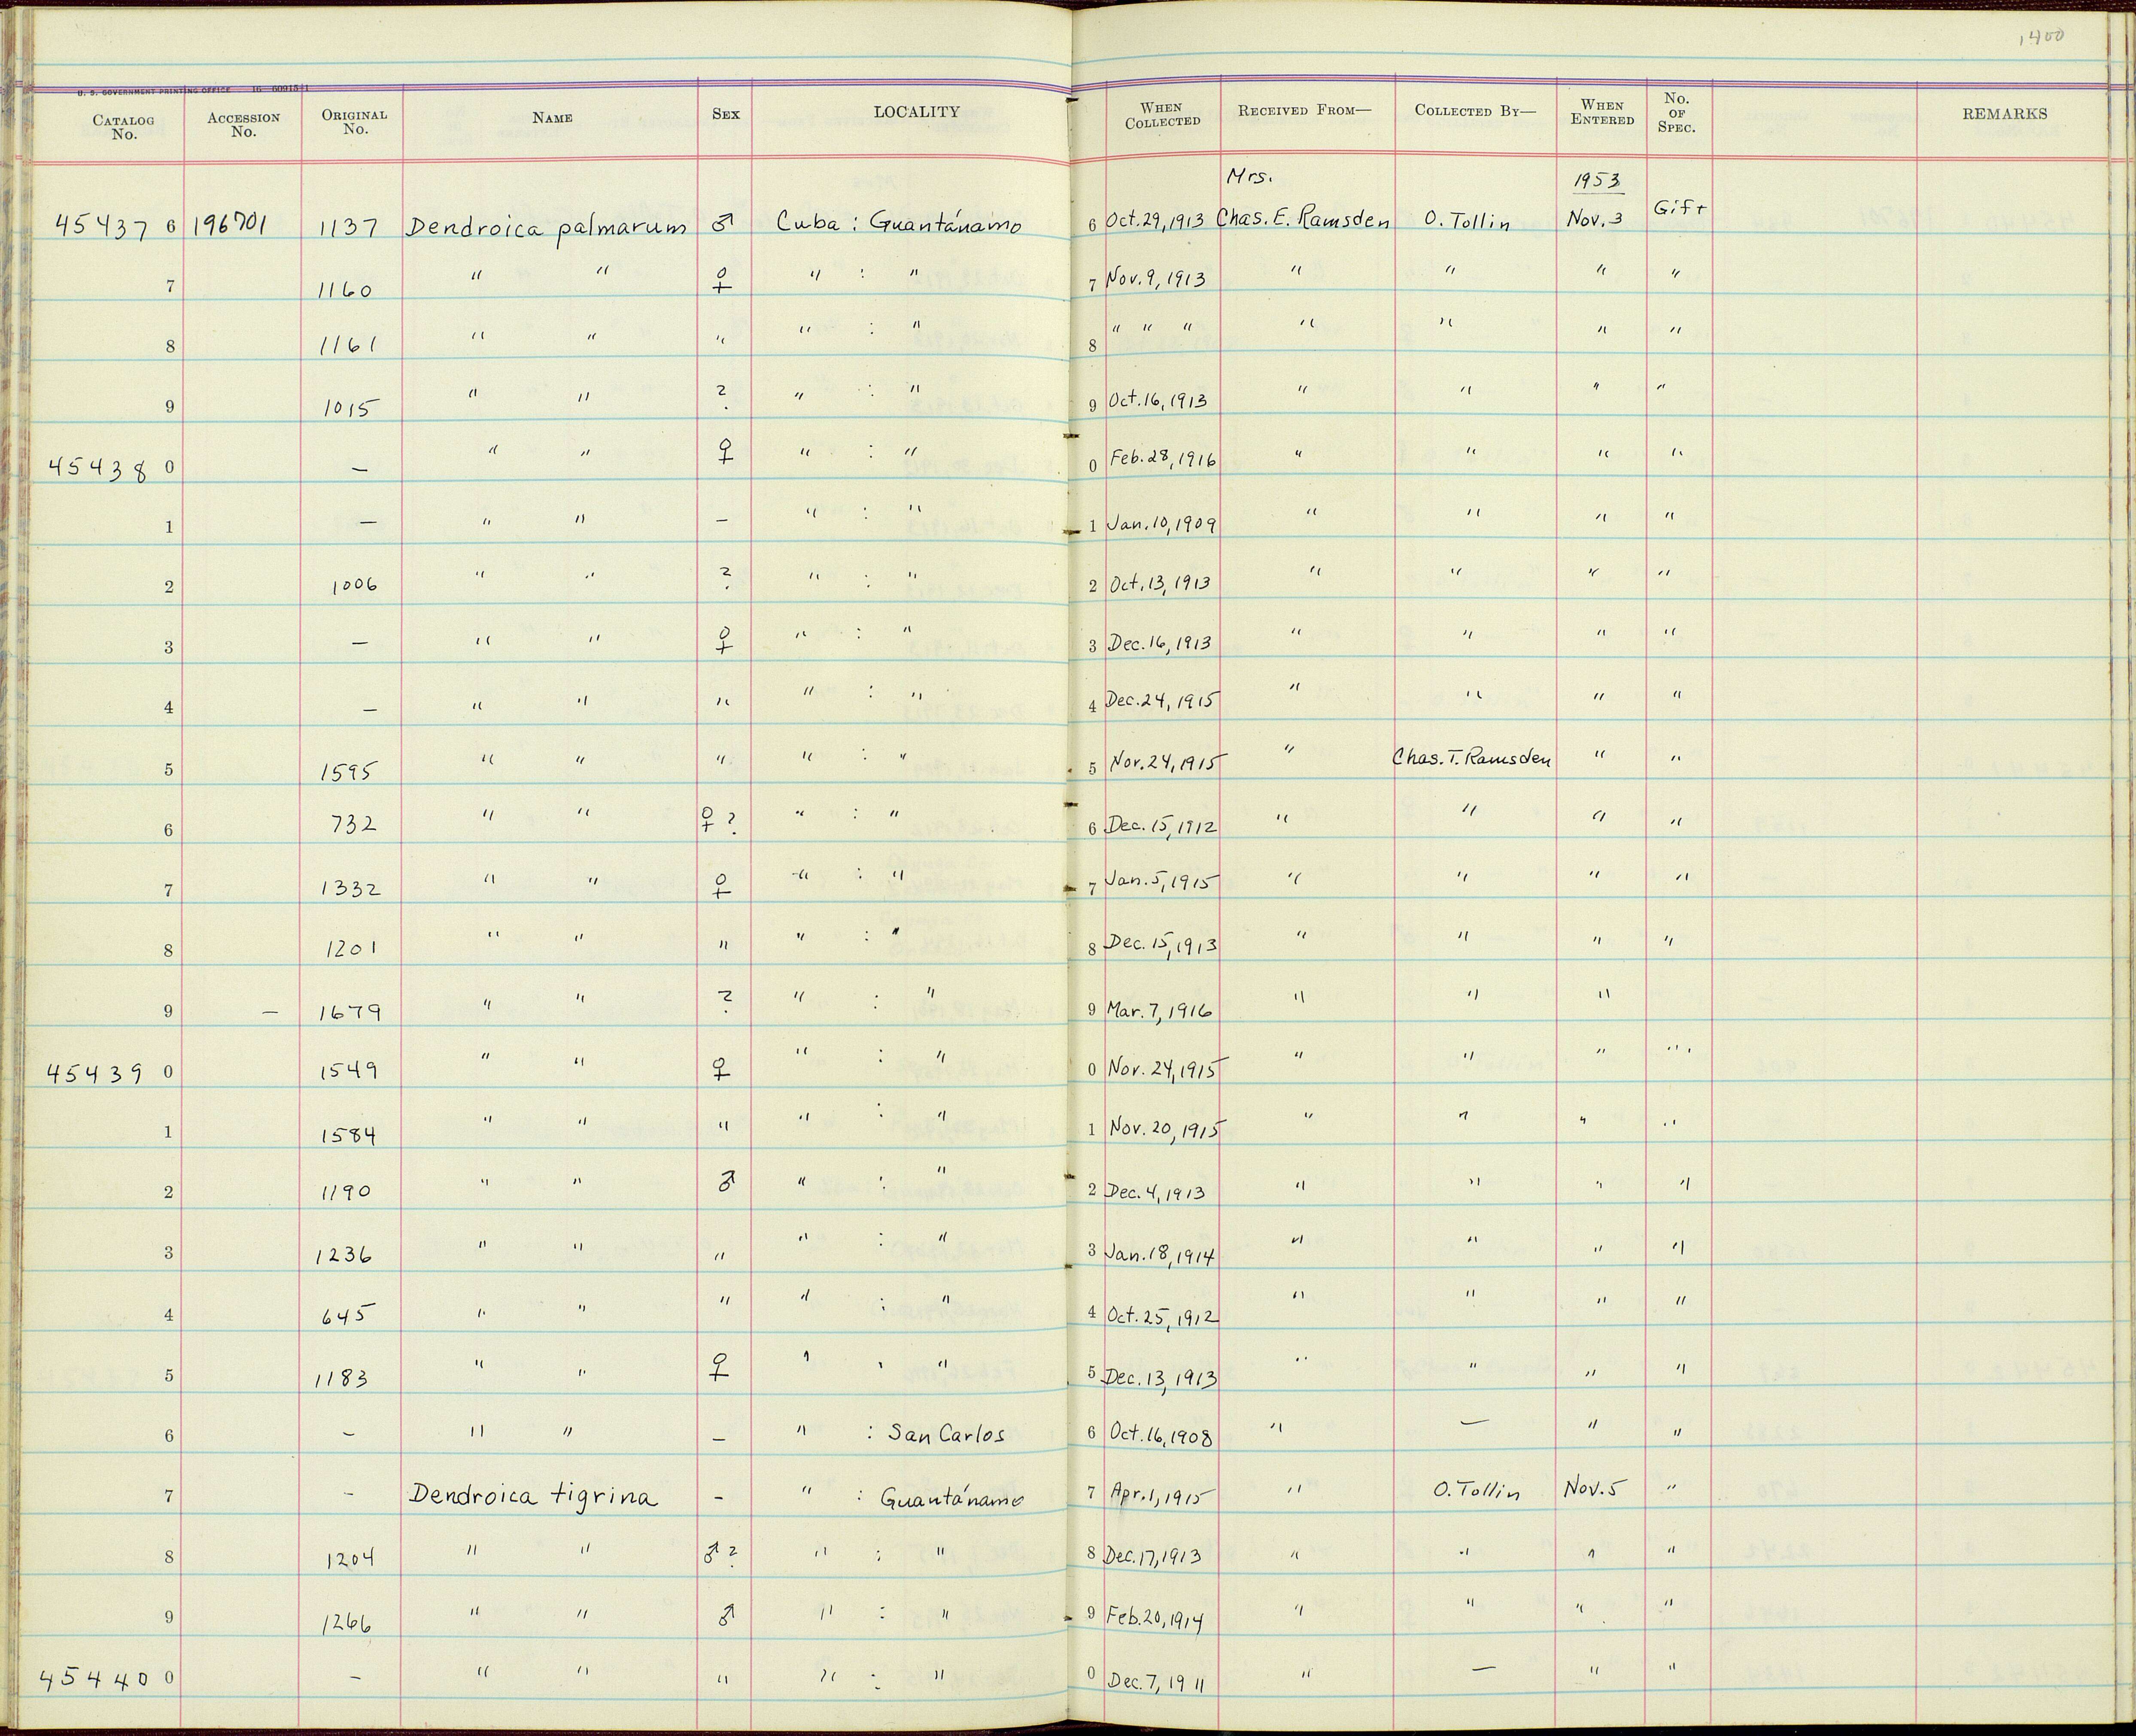 1400
U. S. GOVERNMENT PRINTING OFFICE 16—60915-1
CATALOG No. ACCESSION No. ORIGINAL No. NAME SEX LOCALITY WHEN COLLECTED RECEIVED FROM— COLLECTED BY— WHEN ENTERED No. OF SPEC. REMARKS
Mrs. 1953
45437 6 196701 1137 Dendroica palmarum ♂ Cuba : Guantánamo 6 Oct. 29, 1913 Chas. E. Ramsden O. Tollin Nov. 3 Gift
7 1160 " " ♀ " : " 7 Nov. 9, 1913 " " " "
8 1161 " " " " : " 8 " " " " " " "
9 1015 " " ? " : " 9 Oct. 16, 1913 " " " "
45438 0 — " " ♀ " : " 0 Feb. 28, 1916 " " " "
1 — " " — " : " 1 Jan. 10, 1909 " " " "
2 1006 " " ? " : " 2 Oct. 13, 1913 " " " "
3 — " " ♀ " : " 3 Dec. 16, 1913 " " " "
4 — " " " " : " 4 Dec. 24, 1915 " " " "
5 1595 " " " " : " 5 Nov. 24, 1915 " Chas. T. Ramsden " "
6 732 " " ♀ ? " : " 6 Dec. 15, 1912 " " " "
7 1332 " " ♀ " : " 7 Jan. 5, 1915 " " " "
8 1201 " " " " : " 8 Dec. 15, 1913 " " " "
9 — 1679 " " ? " : " 9 Mar. 7, 1916 " " "
45439 0 1549 " " ♀ " : " 0 Nov. 24, 1915 " " " "
1 1584 " " " " : " 1 Nov. 20, 1915 " " " "
2 1190 " " ♂ " : " 2 Dec. 4, 1913 " " " "
3 1236 " " " " : " 3 Jan. 18, 1914 " " " "
4 645 " " " " : " 4 Oct. 25, 1912 " " " "
5 1183 " " ♀ " : " 5 Dec. 13, 1913 " " " "
6 — " " — " : San Carlos 6 Oct. 16, 1908 " — " "
7 — Dendroica tigrina — " : Guantánamo 7 Apr. 1, 1915 " O. Tollin Nov. 5 "
8 1204 " " ♂ ? " : " 8 Dec. 17, 1913 " " " "
9 1266 " " ♂ " : " 9 Feb. 20, 1914 " " " "
45440 0 — " " " " : " 0 Dec. 7, 1911 " — " "